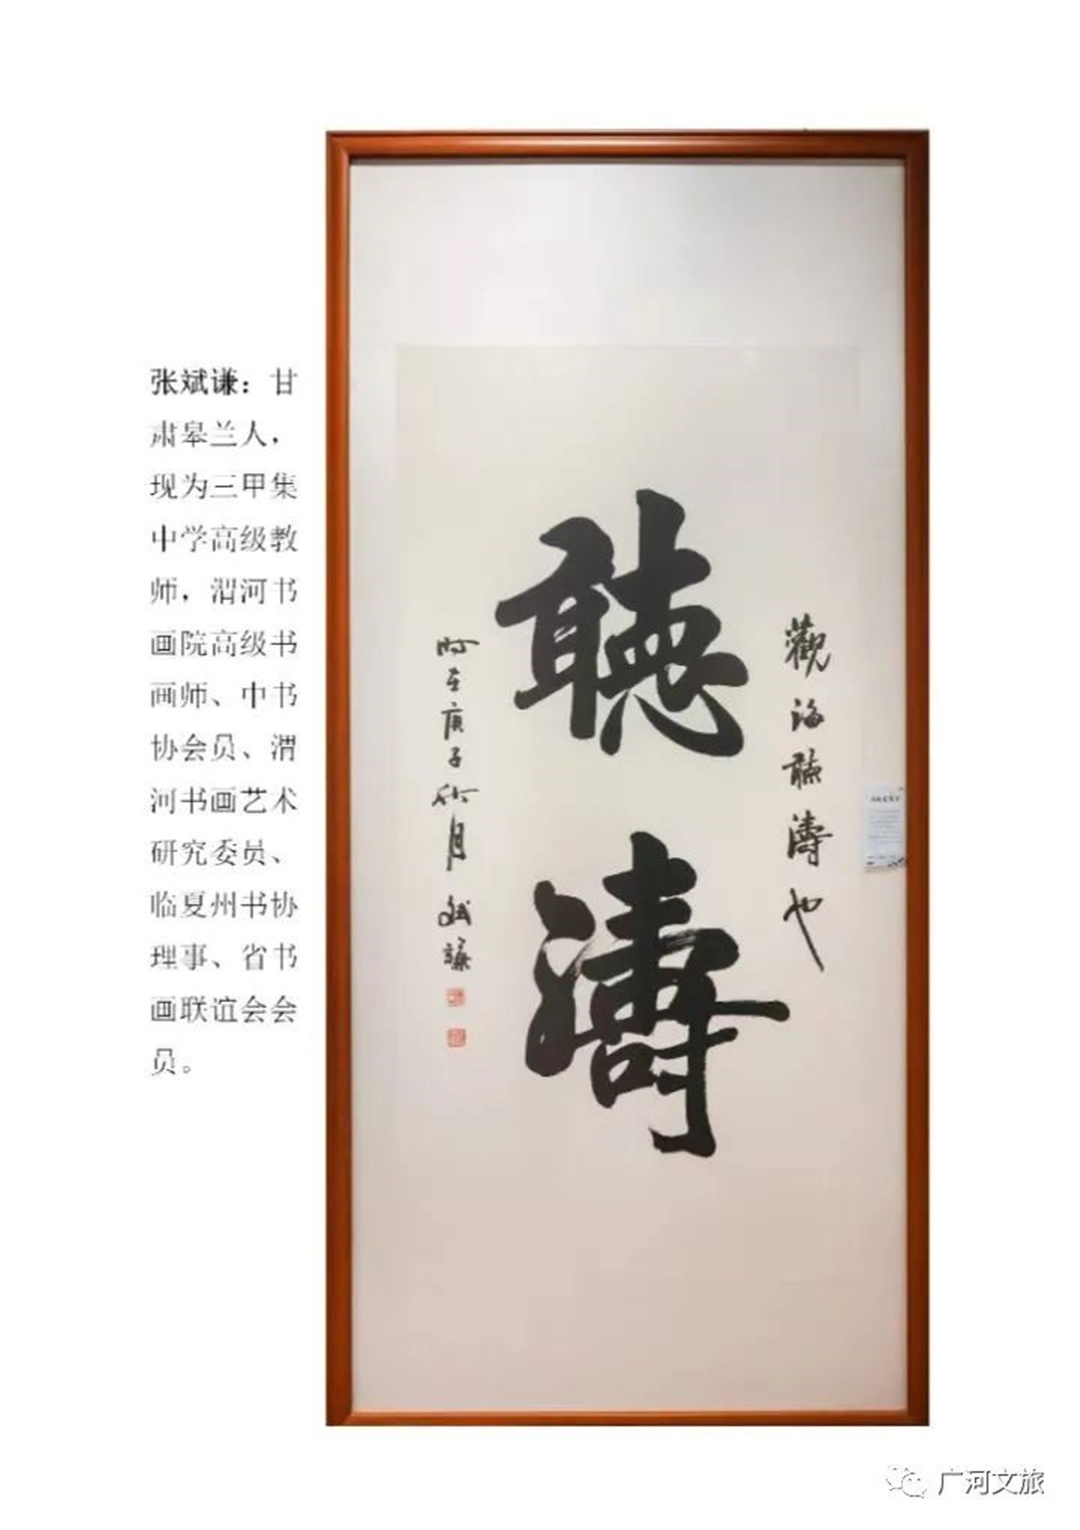 张斌谦：甘
肃皋兰人，
现为三甲集
中学高级教
师，渭河书
画院高级书
画师、中书
协会员、渭
河书画艺术
研究委员、
临夏州书协
理事、省书
画联谊会会
员。
觀海聽濤也
聽濤
時在庚子秋月
斌謙
广河文旅